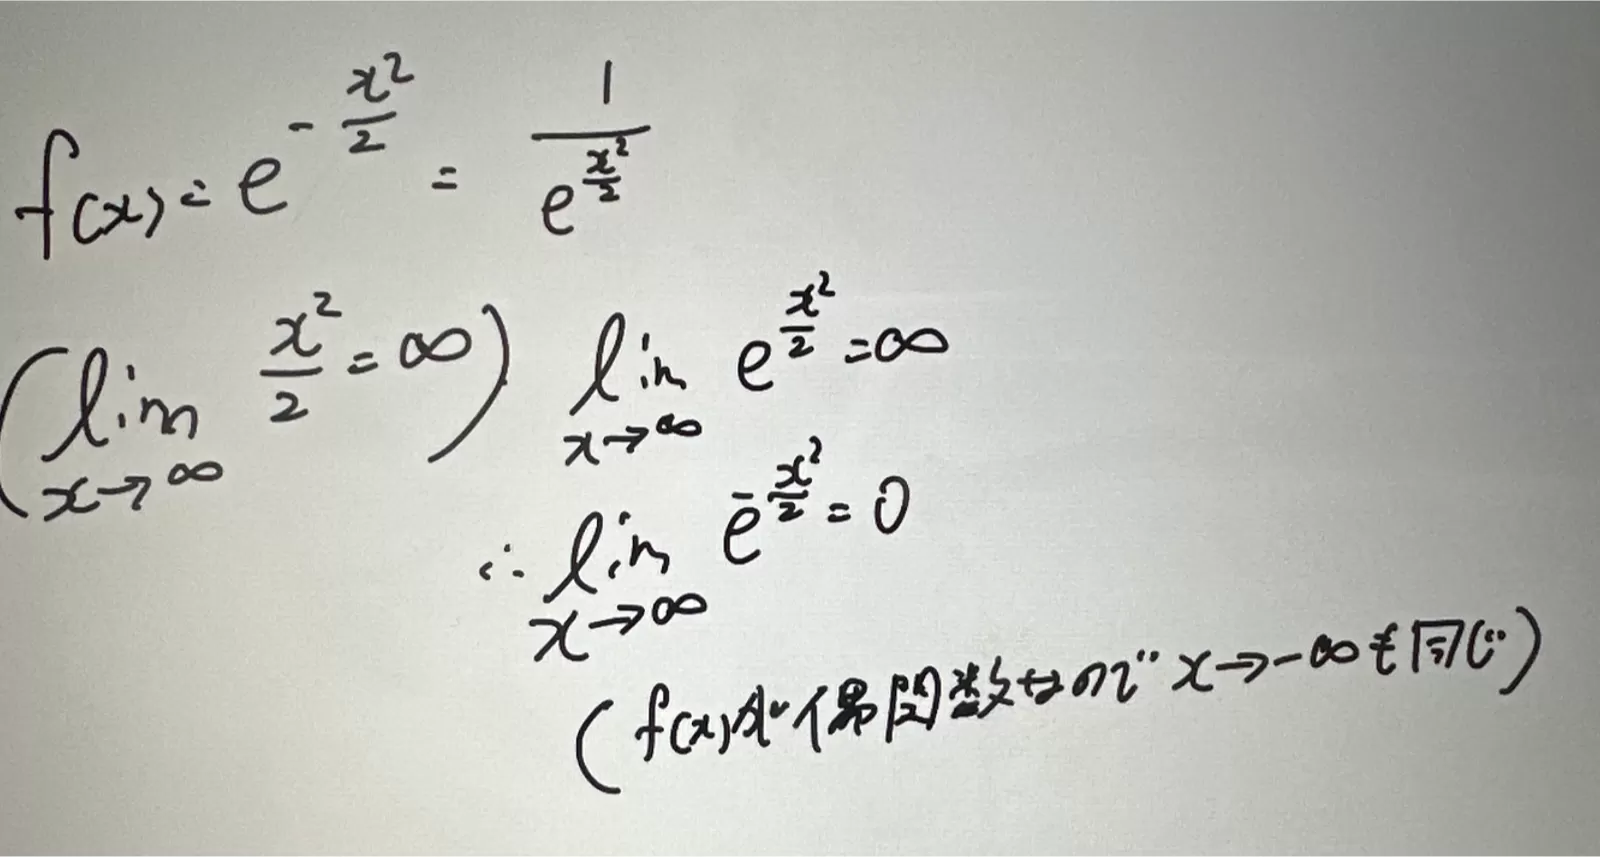 f(x) = e^{-\frac{x^2}{2}} = \frac{1}{e^{\frac{x^2}{2}}}
(\lim_{x→∞} \frac{x^2}{2} = ∞) \lim_{x→∞} e^{\frac{x^2}{2}} = ∞
∴ \lim_{x→∞} e^{-\frac{x^2}{2}} = 0
(f(x)が偶関数なので x→-∞も同じ)